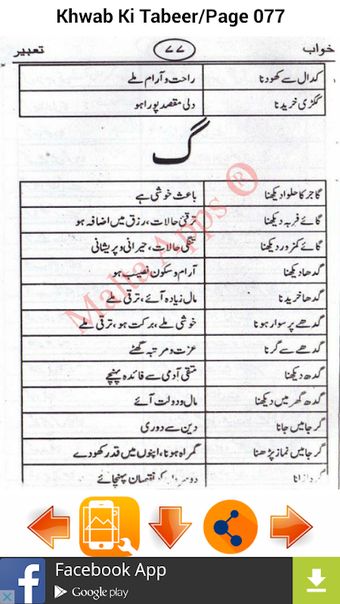 Khwab Ki Tabeer/Page 077
خواب ۷۷ تعبیر
کدال سے کھودنا راحت و آرام ملے
ککڑی خریدنا دلی مقصد پورا ہو
گ
گاجر کا حلوا دیکھنا باعث خوشی ہے
گائے فربہ دیکھنا ترقیٔ حالات، رزق میں اضافہ ہو
گائے کمزور دیکھنا تنگی حالات، حیرانی و پریشانی
گدھا دیکھنا آرام و سکون نصیب ہو
گدھا خریدنا مال زیادہ آئے، ترقی ملے
گدھے پر سوار ہونا خوشی ملے، برکت ہو، ترقی ملے
گدھے سے گرنا عزت و مرتبہ گھٹے
گدھ دیکھنا متقی آدمی سے فائدہ پہنچے
گدھ گھر میں دیکھنا مال و دولت آئے
گرجا میں جانا دین سے دوری
گرجا میں نماز پڑھنا گمراہ ہونا، اپنوں میں قدر کھو دے
نقصان پہنچائے
Malta Apps ®
Facebook App
Google play